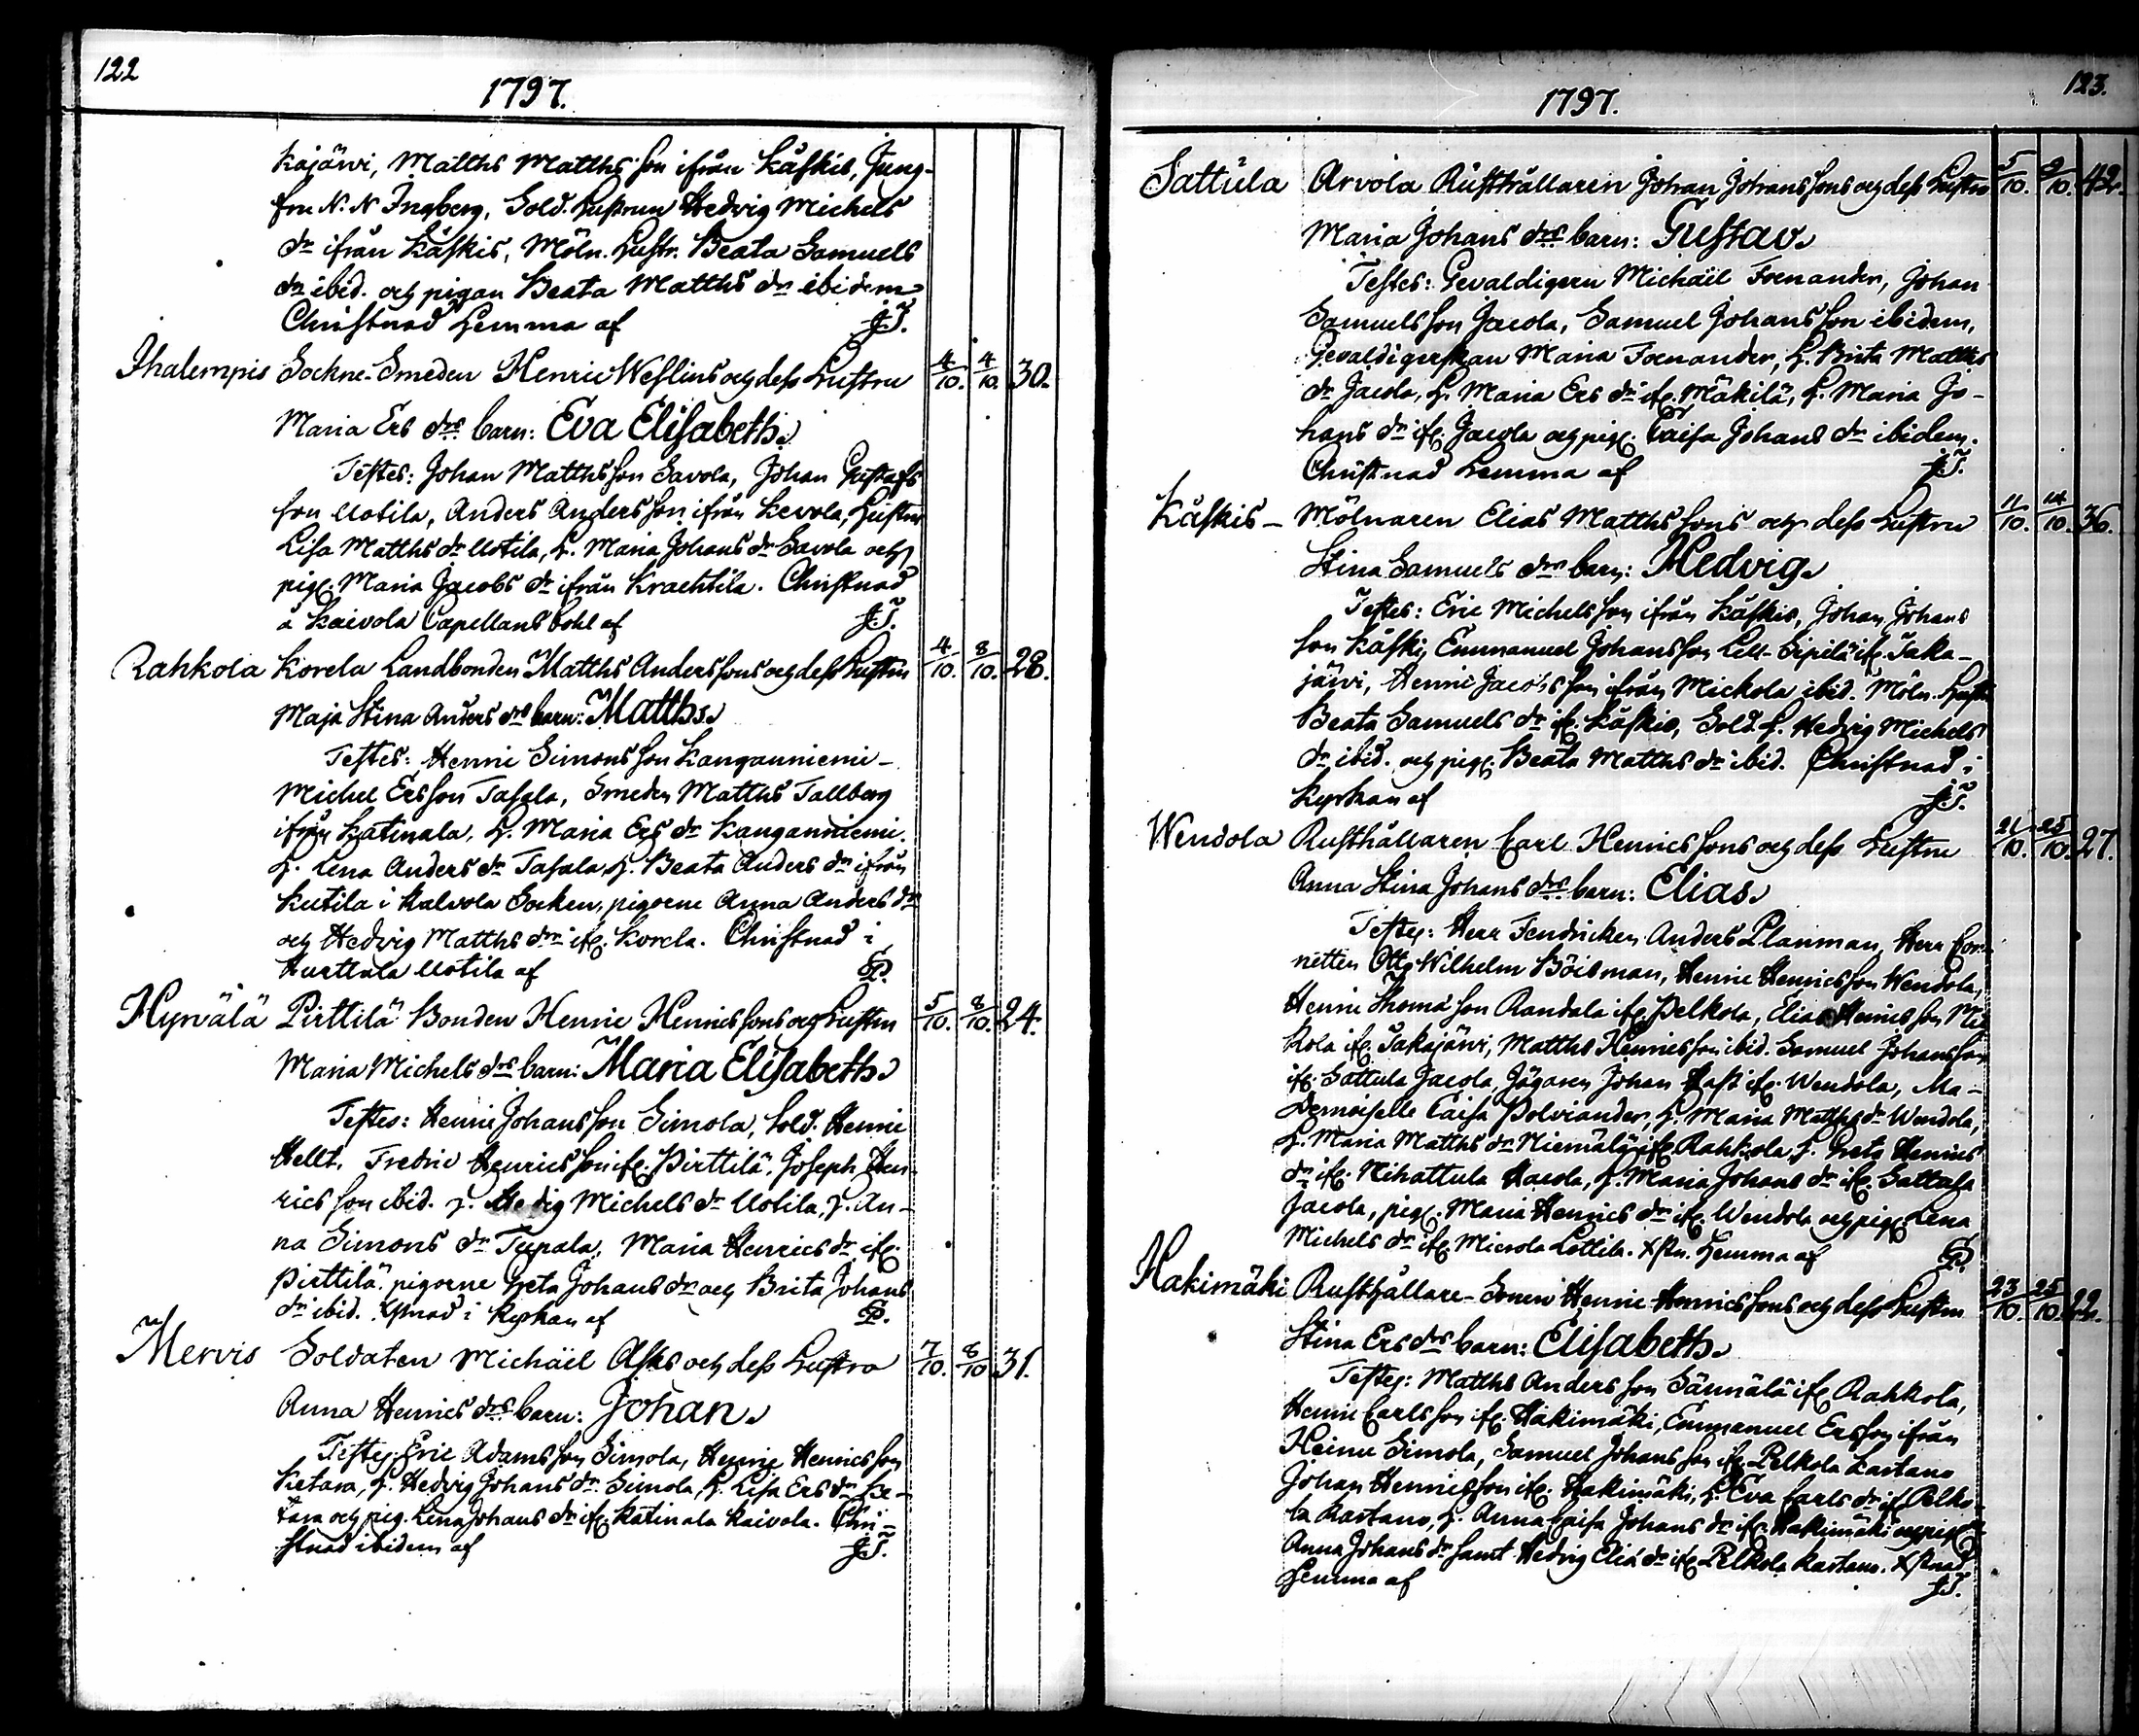 122
1797.
kajärvi, Matths Matths son ifrån Käskis, Jung-
fru N. N Ingberg, Sold. hustrun Hedvig Michels
dr ifrån Käskis, Möln. Hustr. Beata Samuels
dr ibid. och pigan Beata Matths dr ibidem
Christnad hemma af J.T.
Ihalempis Sockne-Smeden Henric Weslins och dess hustru 4/10. 4/10. 30.
Maria Ers drs barn: Eva Elisabeth.
Testes: Johan Matths son Savola, Johan Gustafs
son Uotila, Anders Anders son ifrån Kevola, Hustru
Lisa Matths dr Uotila, H. Maria Johans dr Savola och
pig. Maria Jacobs dr ifrån Kraehtila. Christnad
å Kaivola Capellans bohl af J.T.
Rahkola Korela Landbonden Matths Anders sons och dess hustru 4/10. 8/10. 28.
Maja Stina Anders drs barn: Matths.
Testes: Henric Simons son Kanganniemi-
Michel Ersson Tasala, Smeden Matths Tallberg
ifrån Katinala, H. Maria Ers dr Kanganniemi.
H. Lena Anders dr Tasala, H. Beata Anders dr ifrån
Kutila i Kalvola Socken, pigorne Anna Anders dr
och Hedvig Matths dr if. Korela. Christnad i
Hurttala Uotila af
Hyvälä Pirttilä Bonden Henric Henrics sons och hustru 5/10. 8/10. 24.
Maria Michels drs barn: Maria Elisabeth.
Testes: Henric Johans son Simola, Sold. Henric
Hellt, Fredric Henrics son if. Pirttilä, Joseph Hen-
rics son ibid. H. Hedvig Michels dr Uotila, H. An-
na Simons dr Tupala, Maria Henrics dr if.
Pirttilä. pigorne Greta Johans dr och Brita Johans
dr ibid. Xstnad i Kyrkan af
Mervis Soldaten Michäel Asks och dess hustru 7/10. 8/10 31.
Anna Henrics drs barn: Johan.
Testes: Eric Adams son Simola, Henric Henrics son
Ketara, H. Hedvig Johans dr Simola, H. Lisa Ers dr Ke-
tara och pig. Lena Johans dr if. Katinala Kaivola. Chri-
stnad ibidem af J.T.
123.
1797.
Sattula Arvola Rusthållaren Johan Johans sons och dess hustru 5/10. 9/10. 42.
Maria Johans drs barn: Gustav.
Testes: Gevaldigern Michäel Fornander, Johan
Samuels son Jacola, Samuel Johans son ibidem,
Gevaldigerskan Maria Fornander, H. Brita Matths
dr Jacola, H. Maria Ers dr if. Mäkilä, H. Maria Jo-
hans dr if. Jacola och pig. Caisa Johans dr ibidem.
Christnad hemma af J.T.
Käskis- Mölnaren Elias Matths sons och dess hustru 11/10. 14/10. 36.
Stina Samuels drs barn: Hedvig.
Testes: Eric Michels son ifrån Käskis, Johan Johans
son Käski, Emmanuel Johans son Lill-Sipilä if. Taka-
järvi, Henric Jacobs son ifrån Mickola ibid. Möln. Hustr.
Beata Samuels dr if. Käskis, Sold. H. Hedvig Michels
dr ibid. och pig. Beata Matths dr ibid. Christnad i
Kyrkan af J.T.
Wendola Rusthållaren Carl Henrics sons och dess hustru 21/10. 25/10. 27.
Anna Stina Johans drs barn: Elias.
Testes: Herr Fendricken Anders Planman, Herr Cor-
netten Otto Wilhelm Böisman, Henric Henrics son Wendola,
Henric Thomas son Randala if. Pelkola, Elias Henrics son Mic
kola if. Takajärvi, Matths Henrics son ibid. Samuel Johans son
if. Sattula Jacola, Jägaren Johan Rast if. Wendola, Ma-
demoiselle Caisa Polviander, H. Maria Matths dr Wendola,
H. Maria Matths dr Niemälä if. Rahkola, H. Greta Henrics
dr if. Nihattula, H. Maria Johans dr if. Sattula
Jacola, pig. Maria Henrics dr if. Wendola och pig. Lena
Michels dr if. Mierola Lottila. Xstn. hemma af
Hakimäki Rusthållare-Sonen Henric Henrics sons och dess hustru 23/10. 25/10. 22.
Stina Ers drs barn: Elisabeth.
Testes: Matths Anders son Sännälä if. Rahkola,
Henric Carls son if. Hakimäki, Emmanuel Ersson ifrån
Heinu Simola, Samuel Johans son if. Pelkola Kartano
Johan Henrics son if. Hakimäki, H. Eva Carls dr if. Pelko-
la Kartano, H. Anna Caisa Johans dr if. Hakimäki och pig.
Anna Johans dr samt Hedvig Elias dr if. Pelkola Kartano. Xstnad
hemma af J.T.